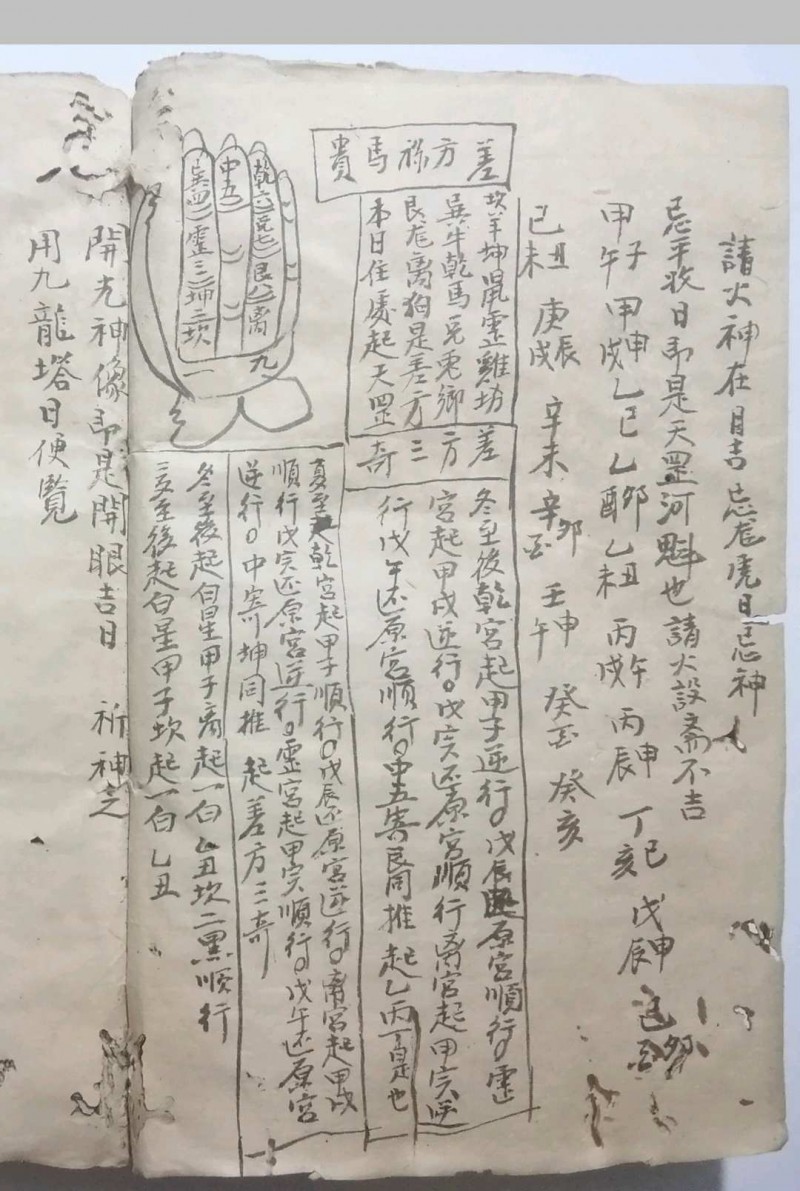 請火神在日吉忌龙虎日忌神
忌平收日即是天罡河魁也請火設斋不吉
甲子午甲申戌乙巳乙酉卯乙未丑丙戌午丙辰申丁亥巳戊辰申
己未丑庚戌辰辛未辛卯壬午申癸癸亥
貴馬祿方差
坎羊坤鼠震雞坊
巽牛乾馬兌兔鄉
艮龙离狗是差方
本日住處起天罡
差方三奇
冬至後乾宮起甲子逆行戊辰原宮順行震
宮起甲戌逆行戊寅还原宮順行离宮起甲寅逆
行戊午还原宮順行中五寄艮同推起乙丙丁是也
夏至起乾宮起甲子順行戊辰还原宮逆行离宮起甲戌
順行戊寅还原宮逆行震宮起甲寅順行戊午还原宮
逆行中寄坤同推起差方三奇
冬至後起白星甲子离起一白乙丑坎二黑順行
夏至後起白星甲子坎起一白乙丑
乾六兌七艮八离九
中五
巽四震三坤二坎一
開光神像即是開眼吉日祈神之
用九龍塔日便覽